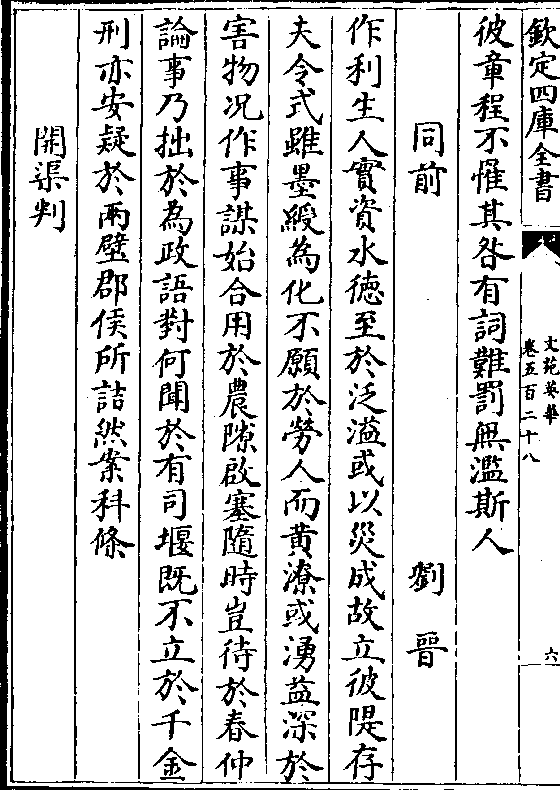 欽定四庫全書
文苑英華
卷五百二十八
六
彼章程不懼其咎有詞難罰無濫斯人
同前
劉晉
作利生人實資水德至於泛溢或以災成故立彼隄存
夫令式雖墨綬為化不願於勞人而黄潦或湧益深於
害物况作事謀始合用於農隙啟塞隨時豈待於春仲
論事乃拙於為政語對何聞於有司堰既不立於千金
刑亦安疑於兩壁郡侯所詰然案科條
開渠判